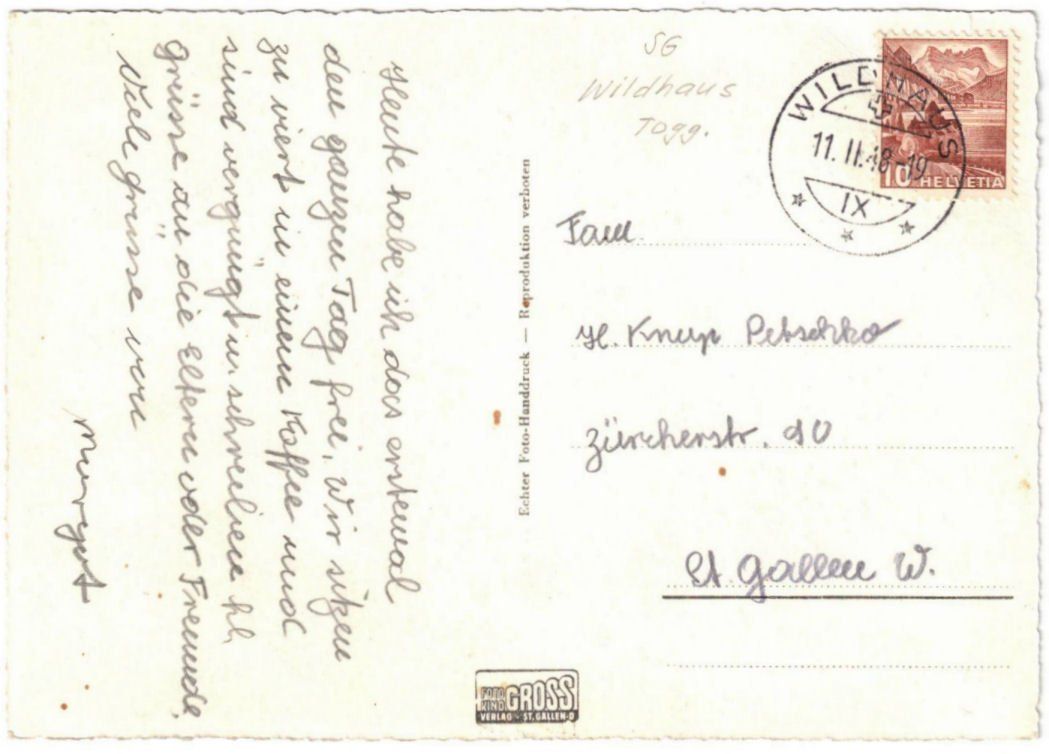 Heute habe ich das erstemal
den ganzen Tag frei. Wir sitzen
zu viert in einem Kaffe und
sind vergnügt u. schreiben hl.
Grüsse an die Eltern oder Freunde.
Viele grüsse von
Margrit
SG
Wildhaus
Togg.
WILDHAUS
11. II. 48-19
IX
10 HELVETIA
Echter Foto-Handdruck — Reproduktion verboten
Fam.
H. Knup Petschko
Zürcherstr. 90
St Gallen W.
FOTO KINO GROSS
VERLAG ST. GALLEN-O